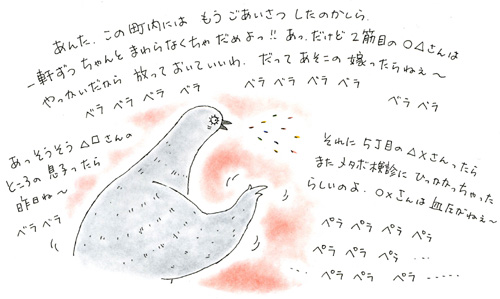 あんた、この町内には もうごあいさつ したのかしら、
一軒ずつ ちゃんと まわらなくちゃだめよっ!! あっ、だけど 2筋目の ○△さんは
やっかいだから 放っておいていいわ、だって あそこの 嫁ったらねぇ〜
ベラ ベラ ベラ ベラ
ベラ ベラ ベラ ベラ
ベラ ベラ
あっそうそう △□さんの
ところの 息子ったら
昨日ね〜
ベラ ベラ
それに 5丁目の △×さんったら
また メタボ検診に ひっかかっちゃった
らしいのよ、○×さんは 血圧がねぇ〜
ペラ ペラ ペラ ペラ
ペラ ペラ ペラ …
… ペラ ペラ ペラ ……